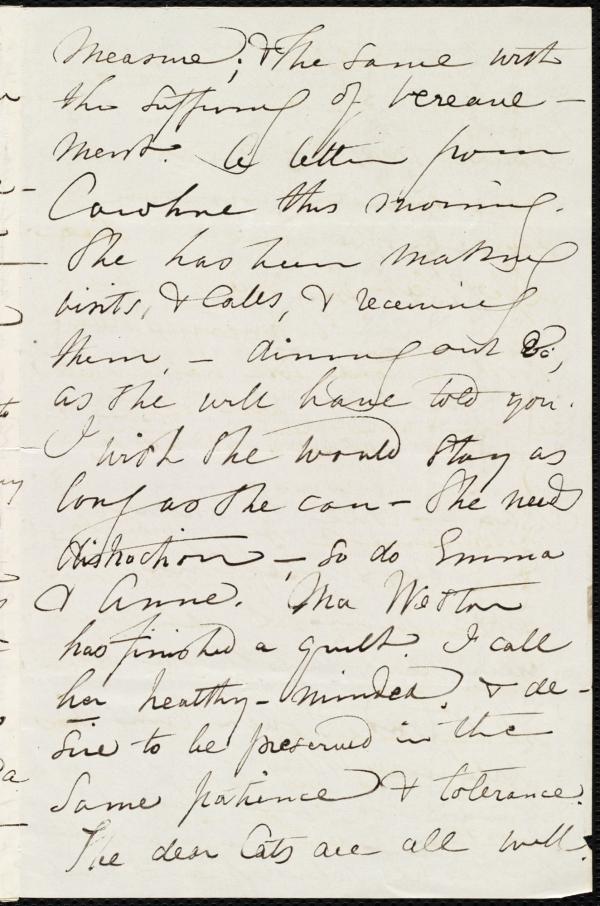 measure; & the same with
the suffering of bereave-
ment. A letter from
Caroline this morning.
She has been making
visits, & calls, & receiving
them, - dining out &c,
as she will have told you.
I wish she would stay as
long as she can - she needs
distraction, - so do Emma
& Anne. Ma Weston
has finished a quilt. I call
her healthy-minded, & de-
sire to be preserved in the
same patience & tolerance.
The dear Cats are all well.